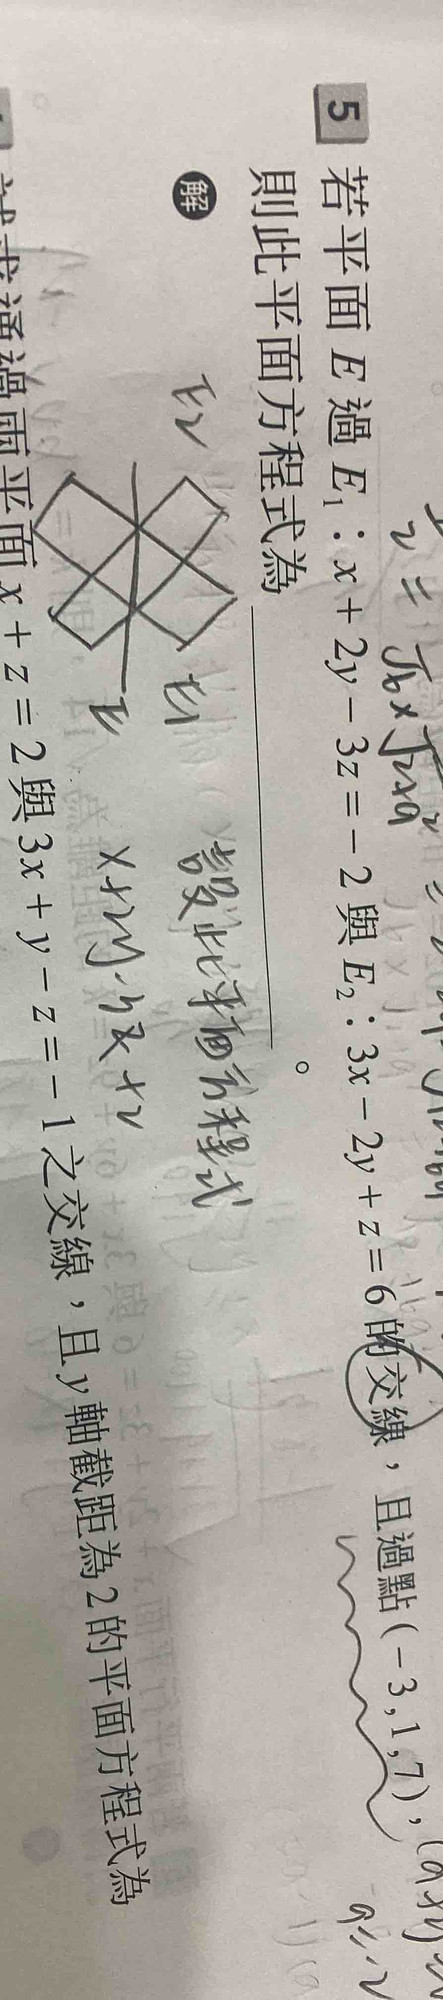 5 若平面 E 過 E₁：x + 2y − 3z = −2 與 E₂：3x − 2y + z = 6 的交線，且過點 (−3 , 1 , 7)，
則此平面方程式為 ________ 。
解
E₂
E₁
E
設此平面方程式
x+2y-3z+2
通過兩平面 x + z = 2 與 3x + y − z = −1 之交線，且 y 軸截距為 2 的平面方程式為